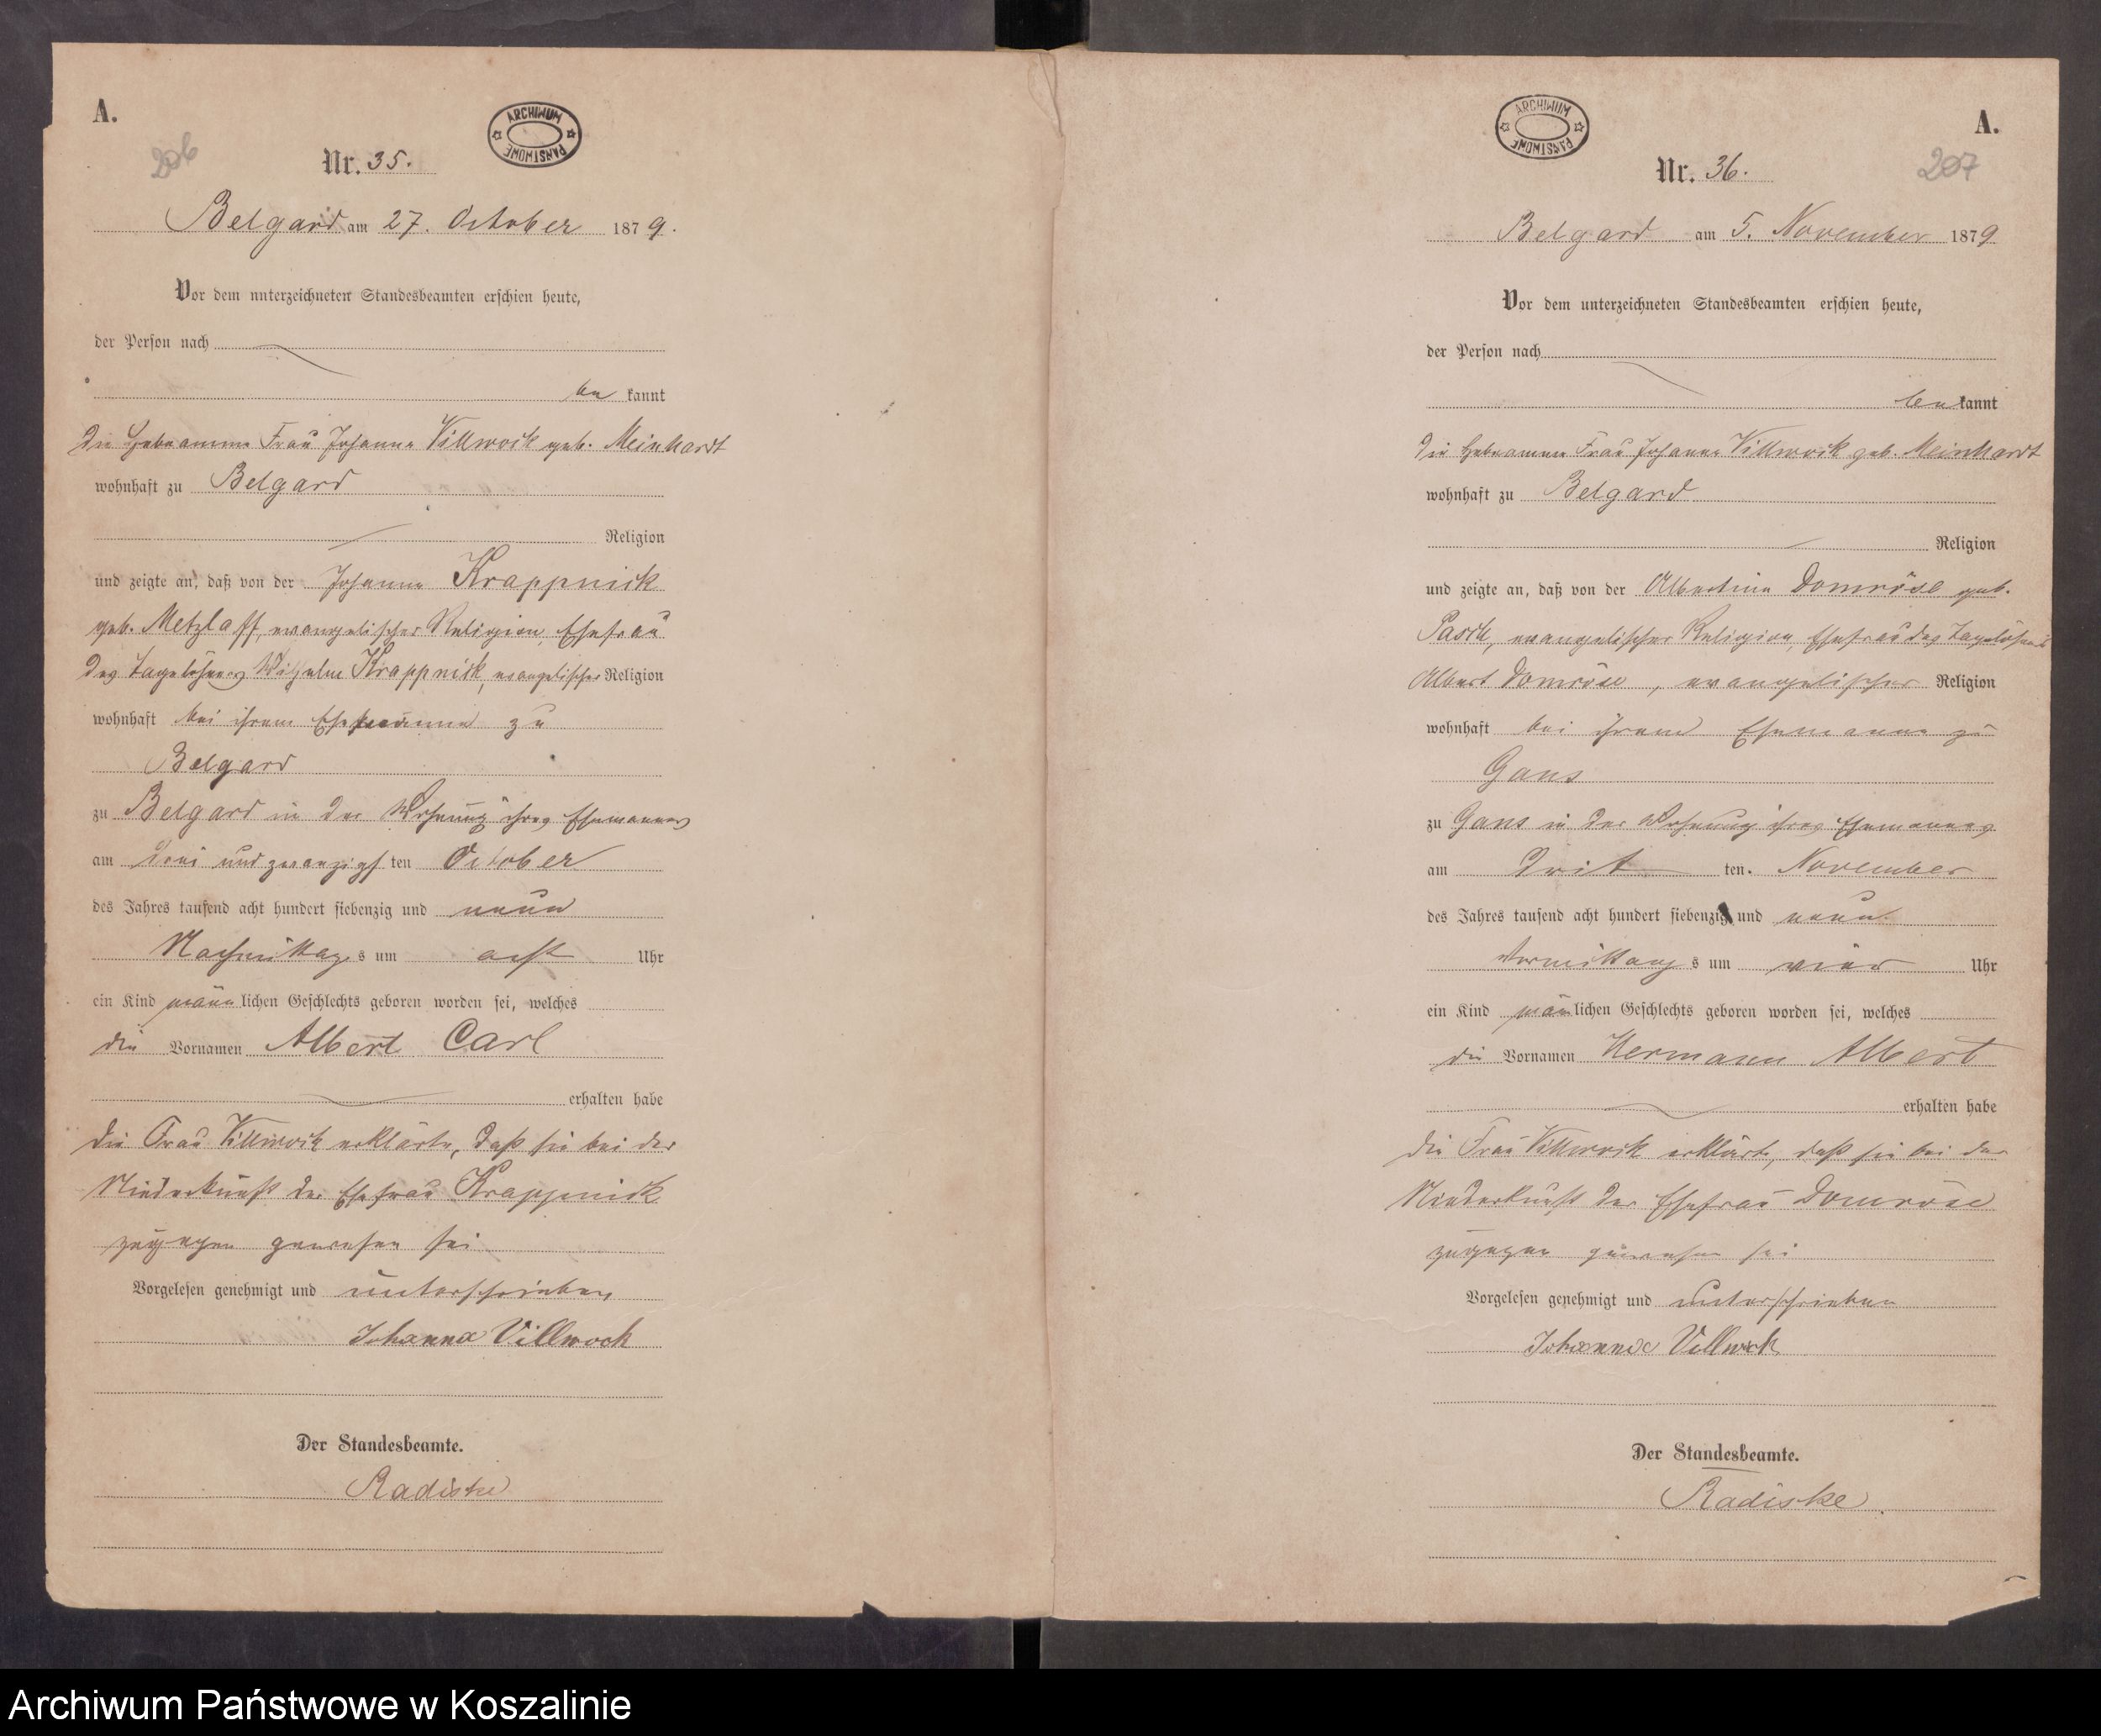 A.
206
ARCHIWUM PAŃSTWOWE
Nr. 35.
Belgard am 27. October 1879.
Vor dem unterzeichneten Standesbeamten erschien heute,
der Person nach
be kannt
die Hebeamme Frau Johanne Villwock geb. Meinhardt
wohnhaft zu Belgard
Religion
und zeigte an, daß von der Johanne Krappnick
geb. Metzlaff, evangelischer Religion, Ehefrau
des Tagelöhners Wilhelm Krappnick, evangelischer Religion
wohnhaft bei ihrem Ehemanne zu
Belgard
zu Belgard in der Wohnung ihres Ehemannes
am drei und zwanzigsten October
des Jahres tausend acht hundert siebenzig und neun
Nachmittags um acht Uhr
ein Kind männlichen Geschlechts geboren worden sei, welches
die Vornamen Albert Carl
erhalten habe
die Frau Villwock erklärte, daß sie bei der
Niederkunft der Ehefrau Krappnick
zugegen gewesen sei
Vorgelesen genehmigt und unterschrieben
Johanna Villwock
Der Standesbeamte.
Radiske
A.
207
ARCHIWUM PAŃSTWOWE
Nr. 36.
Belgard am 5. November 1879
Vor dem unterzeichneten Standesbeamten erschien heute,
der Person nach
be kannt
die Hebeamme Frau Johanne Villwock geb. Meinhardt
wohnhaft zu Belgard
Religion
und zeigte an, daß von der Albertine Domröse geb.
Pasch, evangelischer Religion, Ehefrau des Tagelöhners
Albert Domröse, evangelischer Religion
wohnhaft bei ihrem Ehemanne zu
Gans
zu Gans in der Wohnung ihres Ehemannes
am dritten November
des Jahres tausend acht hundert siebenzig und neun
Vormittags um vier Uhr
ein Kind männlichen Geschlechts geboren worden sei, welches
die Vornamen Hermann Albert
erhalten habe
die Frau Villwock erklärte, daß sie bei der
Niederkunft der Ehefrau Domröse
zugegen gewesen sei
Vorgelesen genehmigt und unterschrieben
Johanna Villwock
Der Standesbeamte.
Radiske
Archiwum Państwowe w Koszalinie